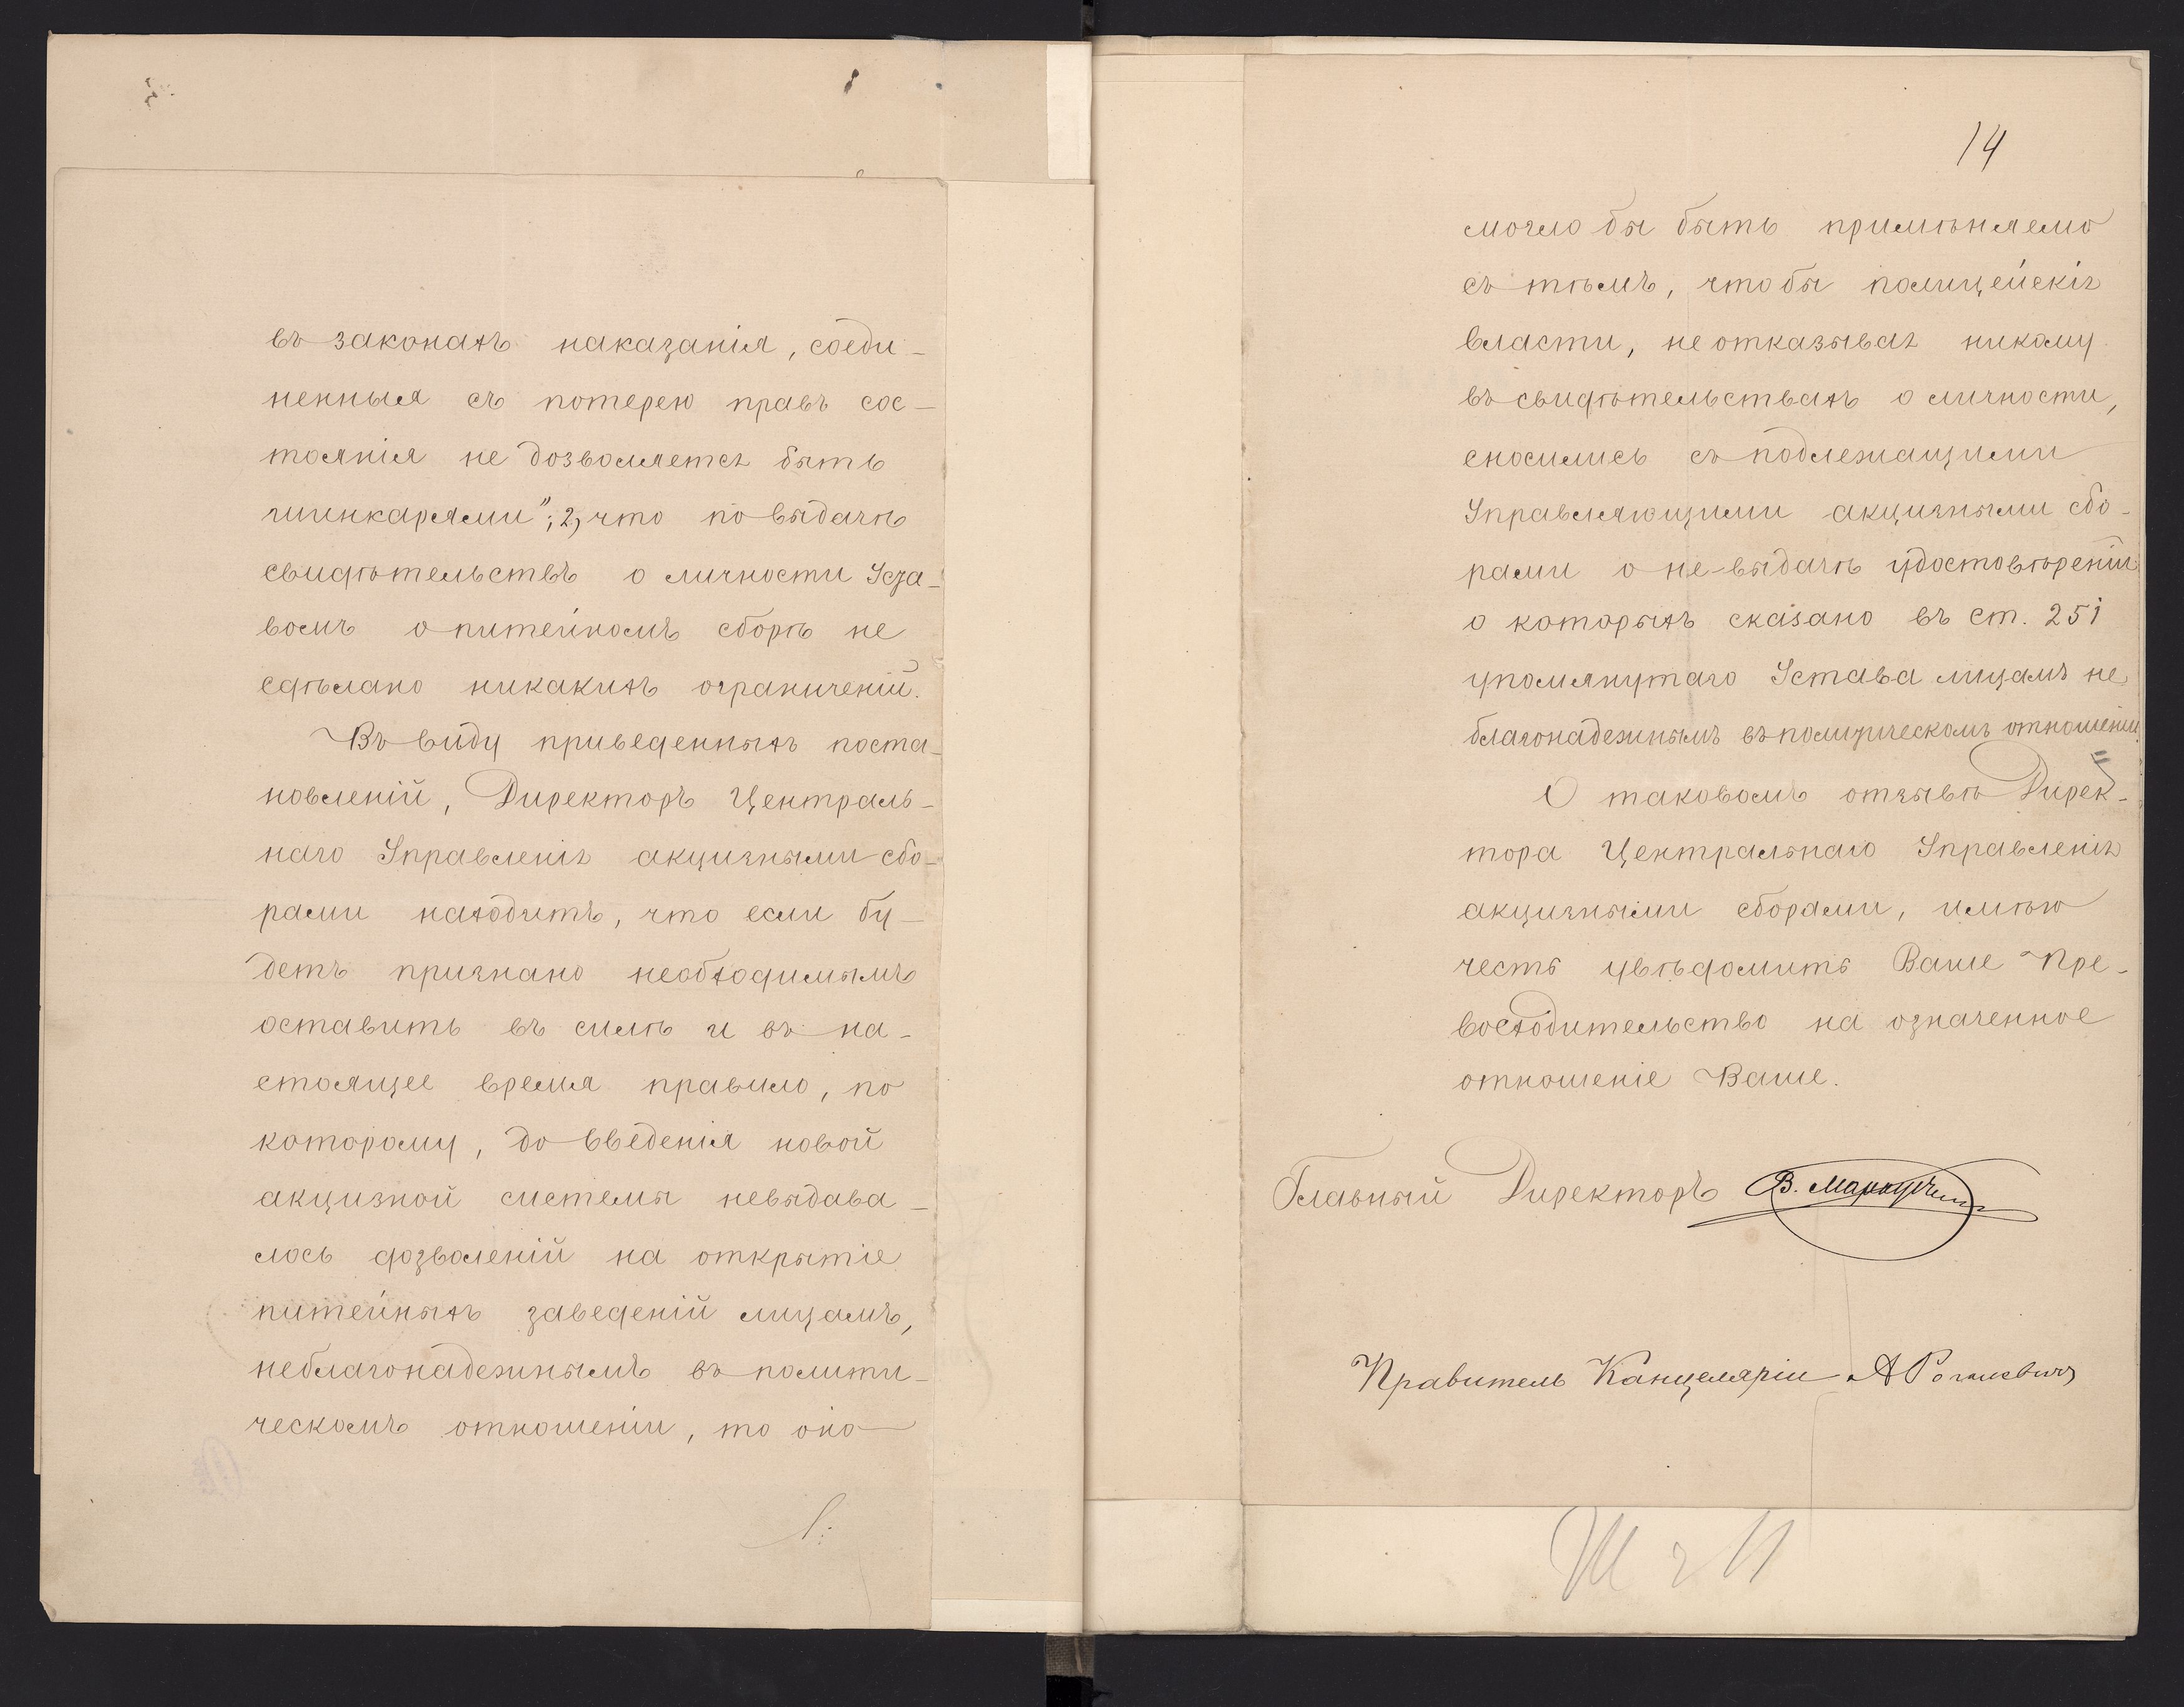 въ законахъ наказанія, соеди-
ненныя съ потерею правъ сос-
тоянія не дозволяется быть
шинкарями"; 2, что по выдачѣ
свидѣтельствъ о личности Уста-
вомъ о питейномъ сборѣ не
сдѣлано никакихъ ограниченій.
Въ виду приведенныхъ поста-
новленій, Директоръ Централь-
наго Управленія акцизными сбо-
рами находитъ, что если бу-
детъ признано необходимымъ
оставить въ силѣ и въ на-
стоящее время правило, по
которому, до введенія новой
акцизной системы невыдава-
лось дозволеній на открытіе
питейныхъ заведеній лицамъ,
неблагонадежнымъ въ полити-
ческомъ отношеніи, то оно
14
могло бы быть примѣняемо
съ тѣмъ, чтобы полицейскія
власти, не отказывая никому
въ свидѣтельствахъ о личности,
сносились съ подлежащими
Управляющими акцизными сбо-
рами о не-выдачѣ удостовѣреній
о которыхъ сказано въ ст. 251
упомянутаго Устава лицамъ не
благонадежнымъ въ политическомъ отношеніи.
О таковомъ отзывѣ Дирек-
тора Центральнаго Управленія
акцизными сборами, имѣю
честь увѣдомить Ваше Пре-
восходительство на означенное
отношеніе Ваше.
Главный Директоръ В.
Правитель Канцеляріи А